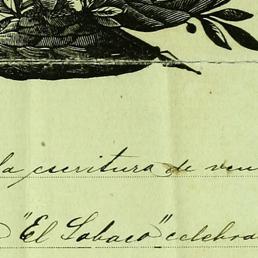 la escritura de
"El Lobaco" celebra